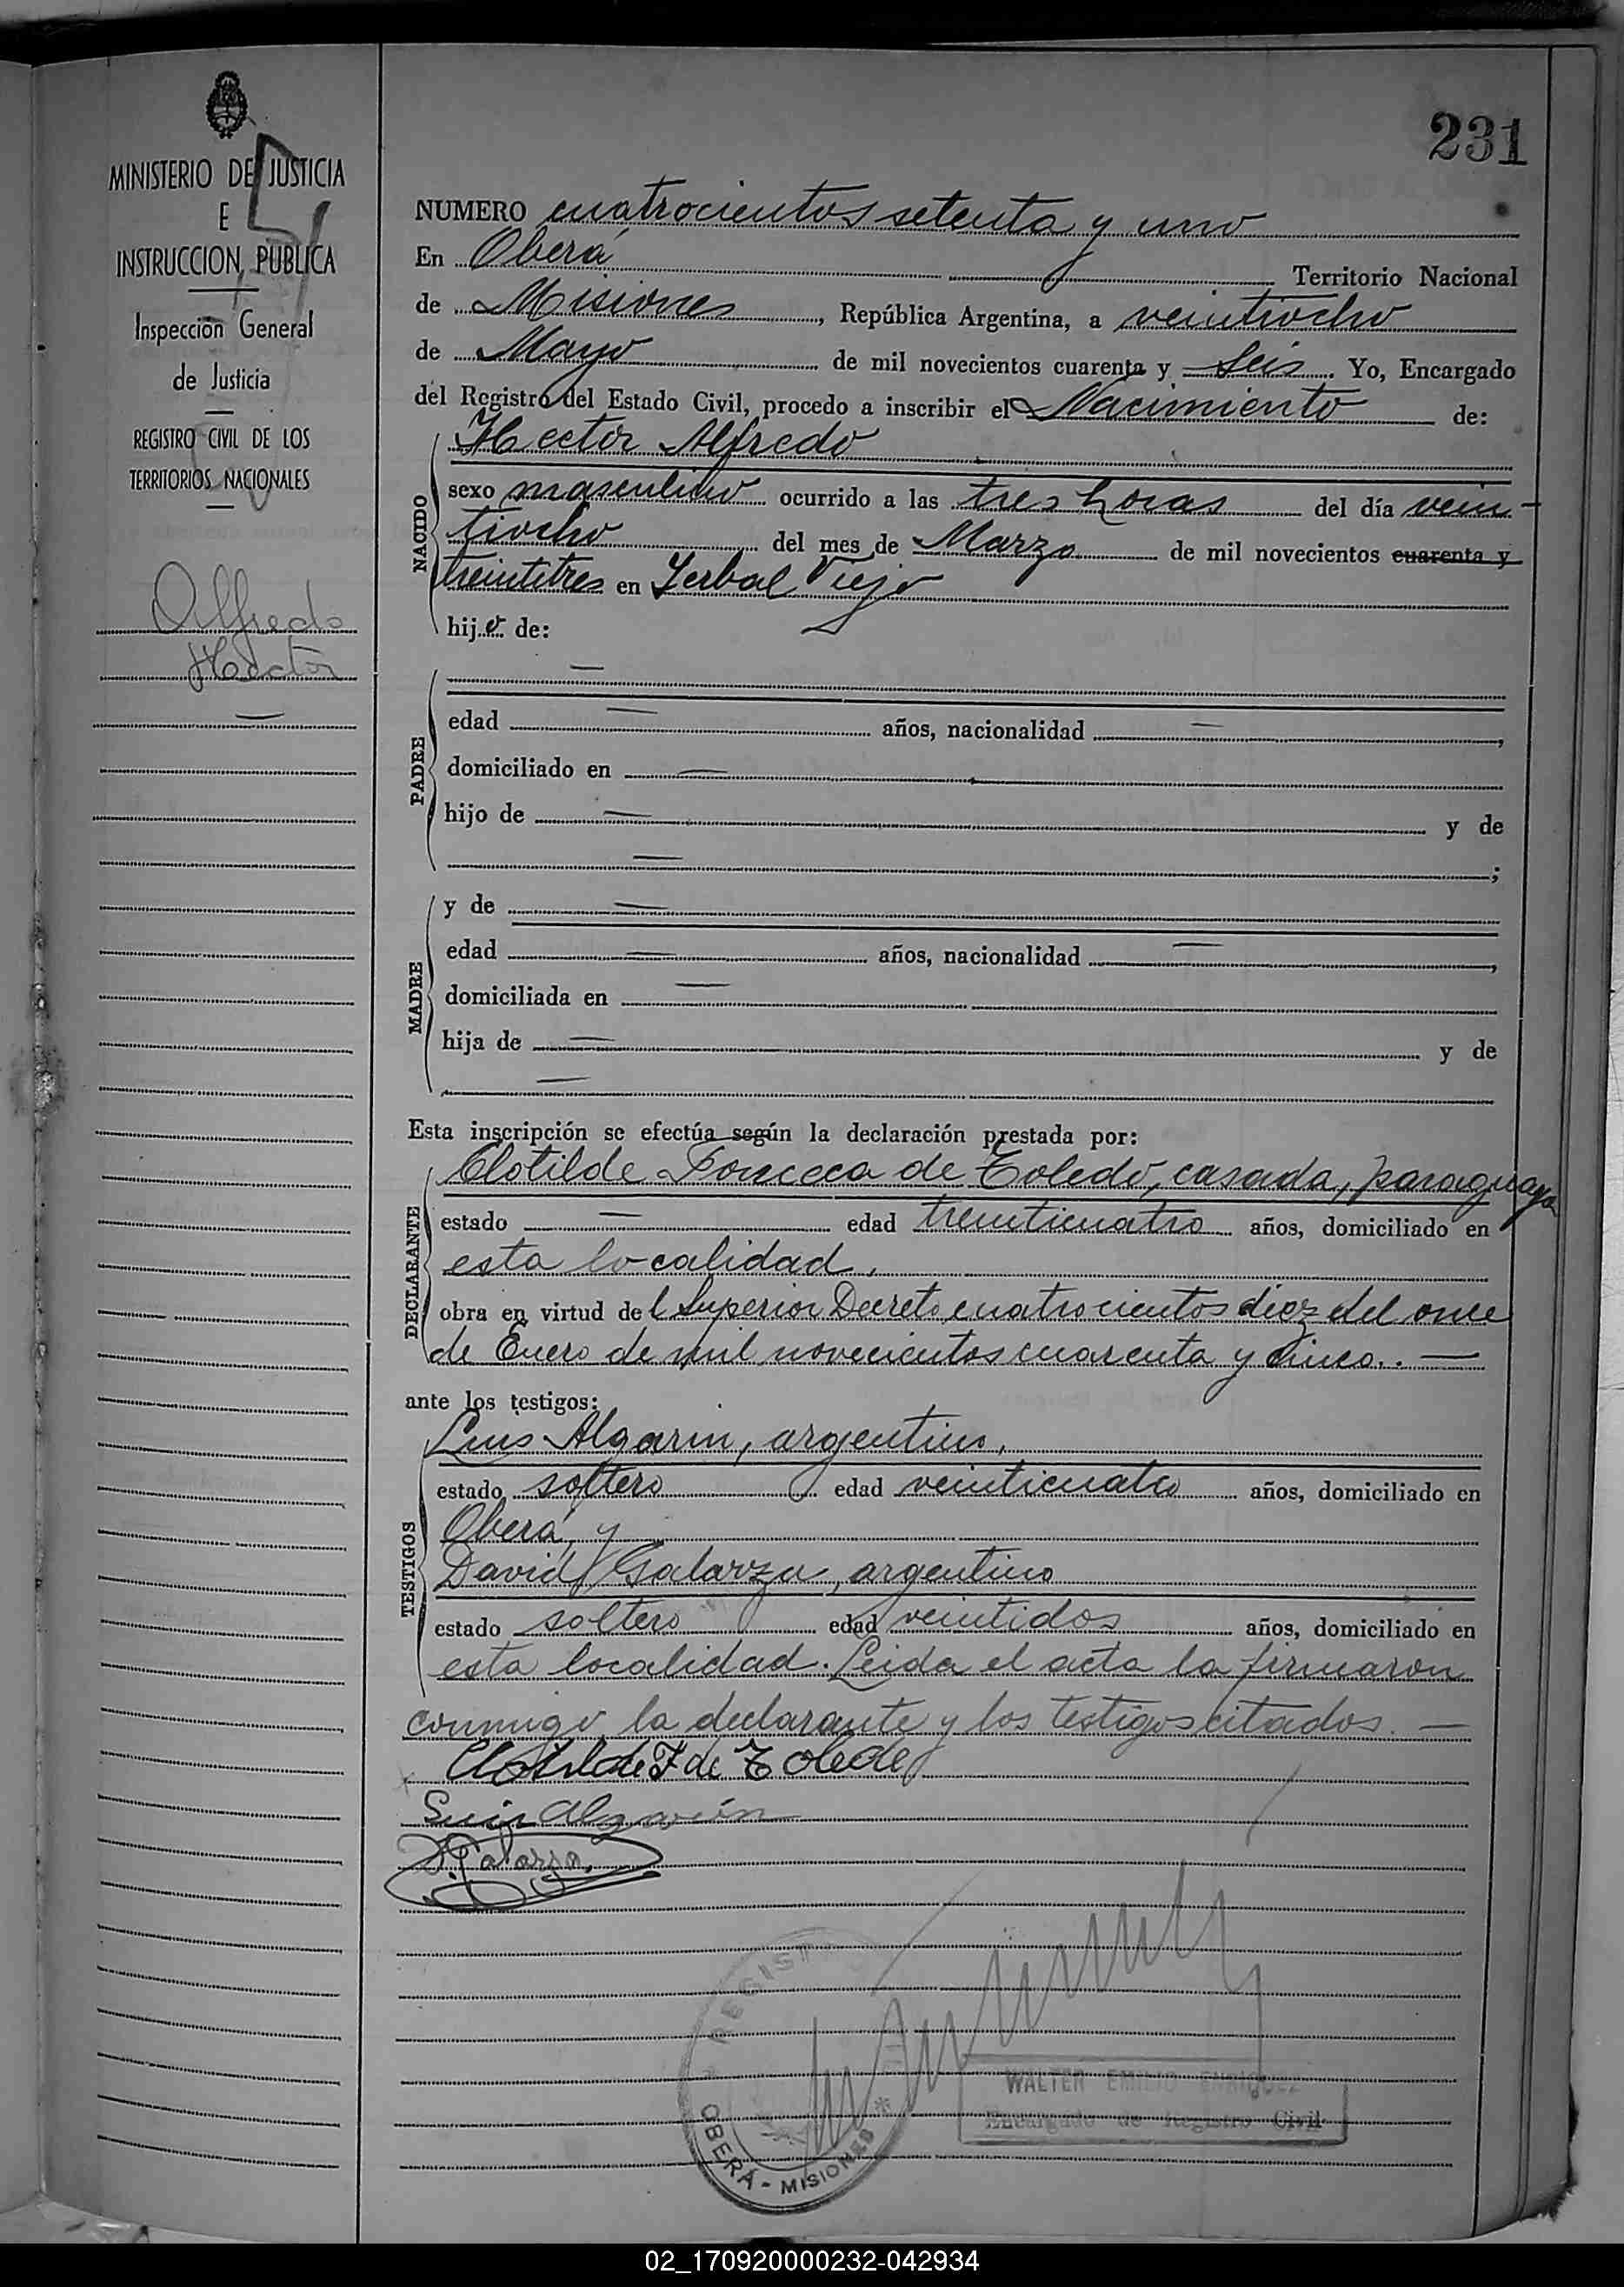 231
MINISTERIO DE JUSTICIA
E
INSTRUCCION PUBLICA
Inspección General
de Justicia
REGISTRO CIVIL DE LOS
TERRITORIOS NACIONALES
Alfredo
Hector
NUMERO cuatrocientos setenta y uno
En Oberá Territorio Nacional
de Misiones, República Argentina, a veintiocho
de Mayo de mil novecientos cuarenta y Seis. Yo, Encargado
del Registro del Estado Civil, procedo a inscribir el Nacimiento de:
Hector Alfredo
NACIDO
sexo masculino ocurrido a las tres horas del día vein-
tiocho del mes de Marzo de mil novecientos cuarenta y
treintitres en Yerbal Viejo
hijo de:
PADRE
edad — años, nacionalidad —,
domiciliado en —
hijo de — y de
— ;
MADRE
y de —
edad — años, nacionalidad —,
domiciliada en —
hija de — y de
—
Esta inscripción se efectúa según la declaración prestada por:
DECLARANTE
Clotilde Fonceca de Toledo, casada, paraguaya
estado — edad treinticuatro años, domiciliado en
esta localidad,
obra en virtud del Superior Decreto cuatrocientos diez del once
de Enero de mil novecientos cuarenta y cinco. . —
ante los testigos:
TESTIGOS
Luis Algarin, argentino,
estado soltero edad veinticuatro años, domiciliado en
Oberá, y
David Galarza, argentino
estado soltero edad veintidos años, domiciliado en
esta localidad. Leida el acta la firmaron
conmigo la declarante y los testigos citados. —
Clotilde F de Toledo
Luis Algarin
D. Galarza
REGIST
OBERÁ - MISIONES
WALTER EMILIO ENRIQUEZ
Encargado de Registro Civil
02_170920000232-042934